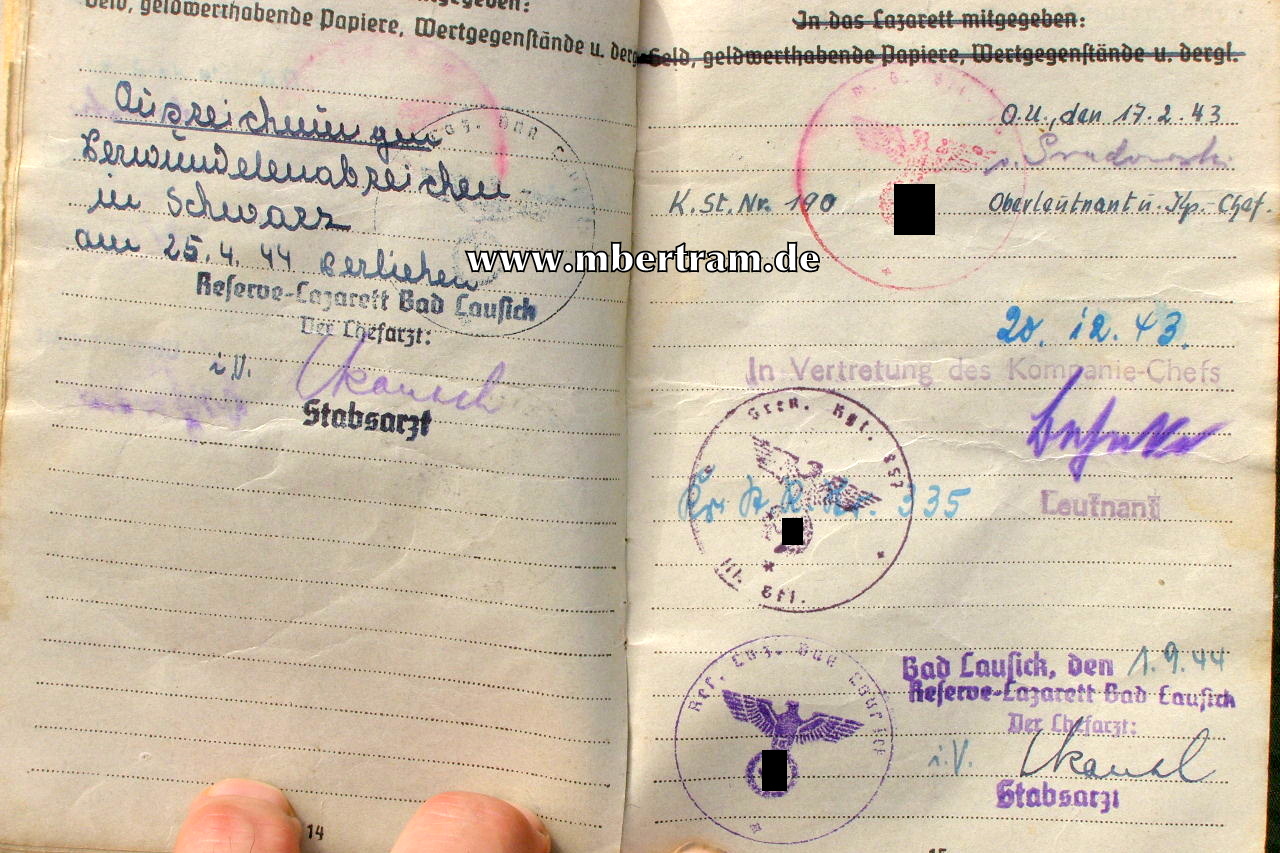 mitgegeben:
Geld, geldwerthabende Papiere, Wertgegenstände u. derg
Auszeichnungen
Verwundetenabzeichen
in Schwarz
am 25.4.44 verliehen
Reserve-Lazarett Bad Lausick
Der Chefarzt:
i.V.
Stabsarzt
14
In das Lazarett mitgegeben:
Geld, geldwerthabende Papiere, Wertgegenstände u. dergl.
O.U., den 17.2.43
K.St.Nr. 190
Oberleutnant u. Kp.-Chef.
www.mbertram.de
20.12.43.
In Vertretung des Kompanie-Chefs
Gren. Rgt.
335
Leutnant
Res. Laz. Bad Lausick
Bad Lausick, den 1.9.44
Reserve-Lazarett Bad Lausick
Der Chefarzt:
i.V.
Stabsarzt